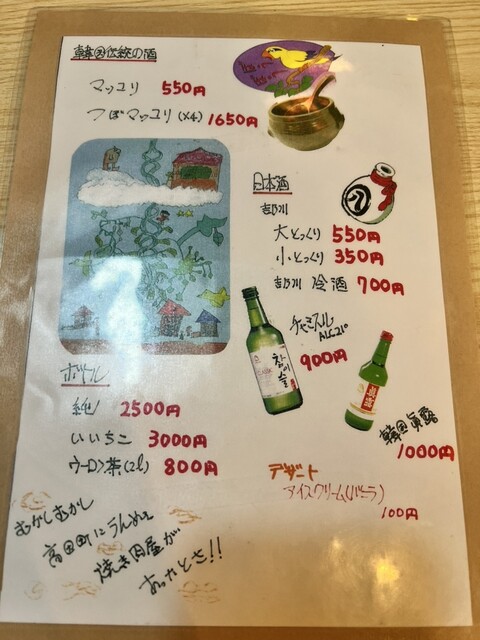 韓国伝統の酒
マッコリ 550円
つぼマッコリ(×4) 1650円
日本酒
吉乃川
大とっくり 550円
小とっくり 350円
吉乃川 冷酒 700円
チャミスル
ALC.21°
900円
참이슬
韓国眞露
1000円
ボトル
2500円
いいちこ 3000円
ウーロン茶(2ℓ) 800円
デザート
アイスクリーム(バニラ)
100円
むかしむかし
高田町にうんめぇ
焼き肉屋が
あったとさ!!